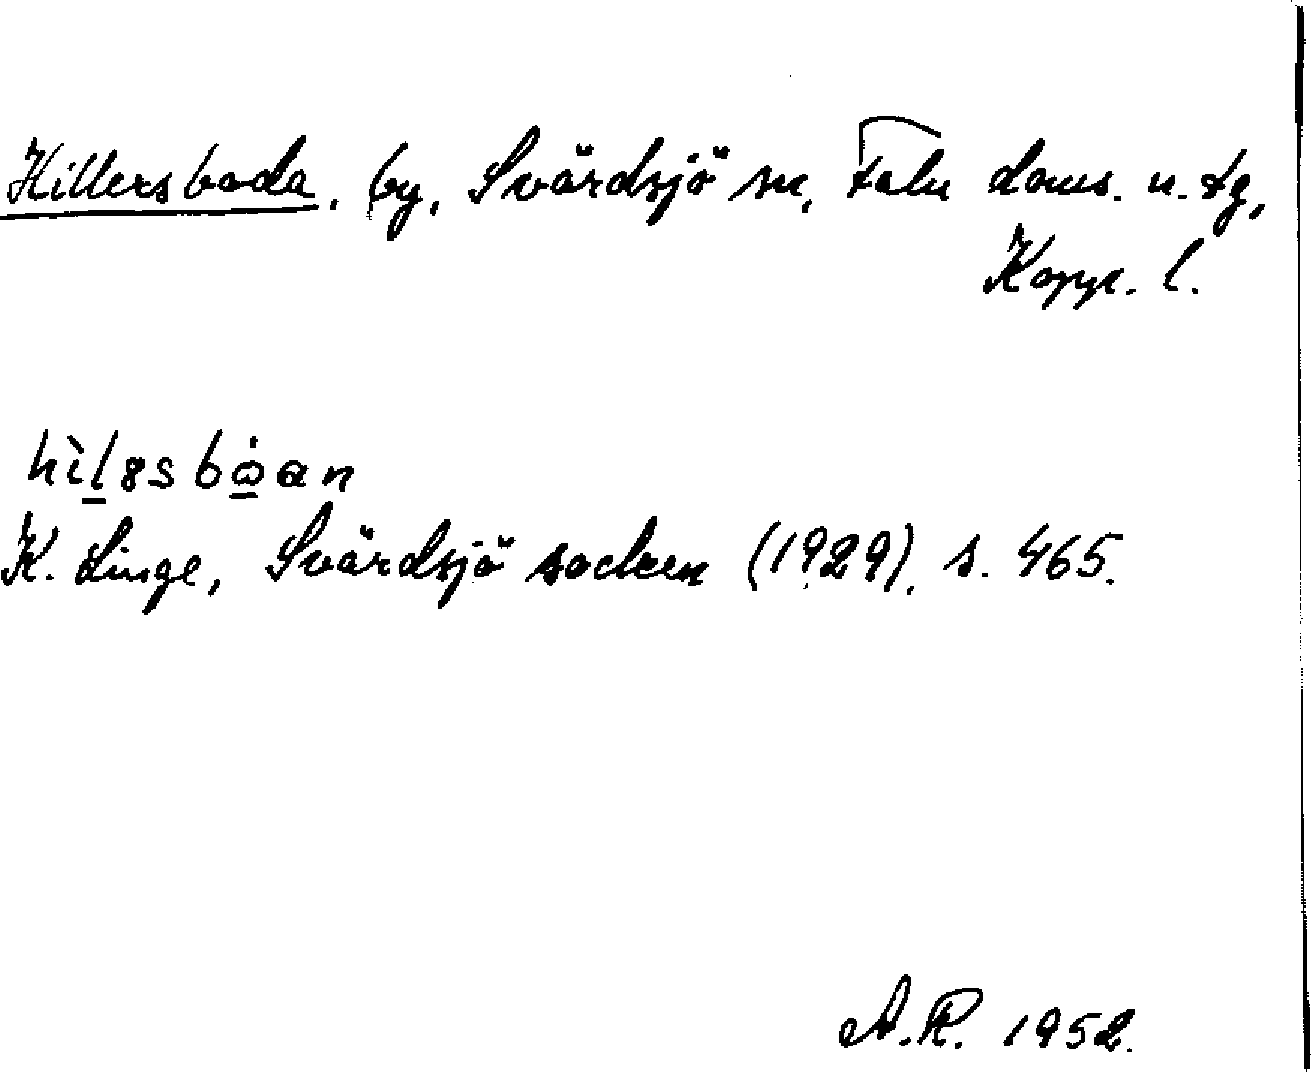 Hillersboda, by, Svärdsjö sn, Falu doms. n. tg,
Kopp. l.
hìlɞsbω̇an
K. Linge, Svärdsjö socken (1929), s. 465.
A.R. 1952.